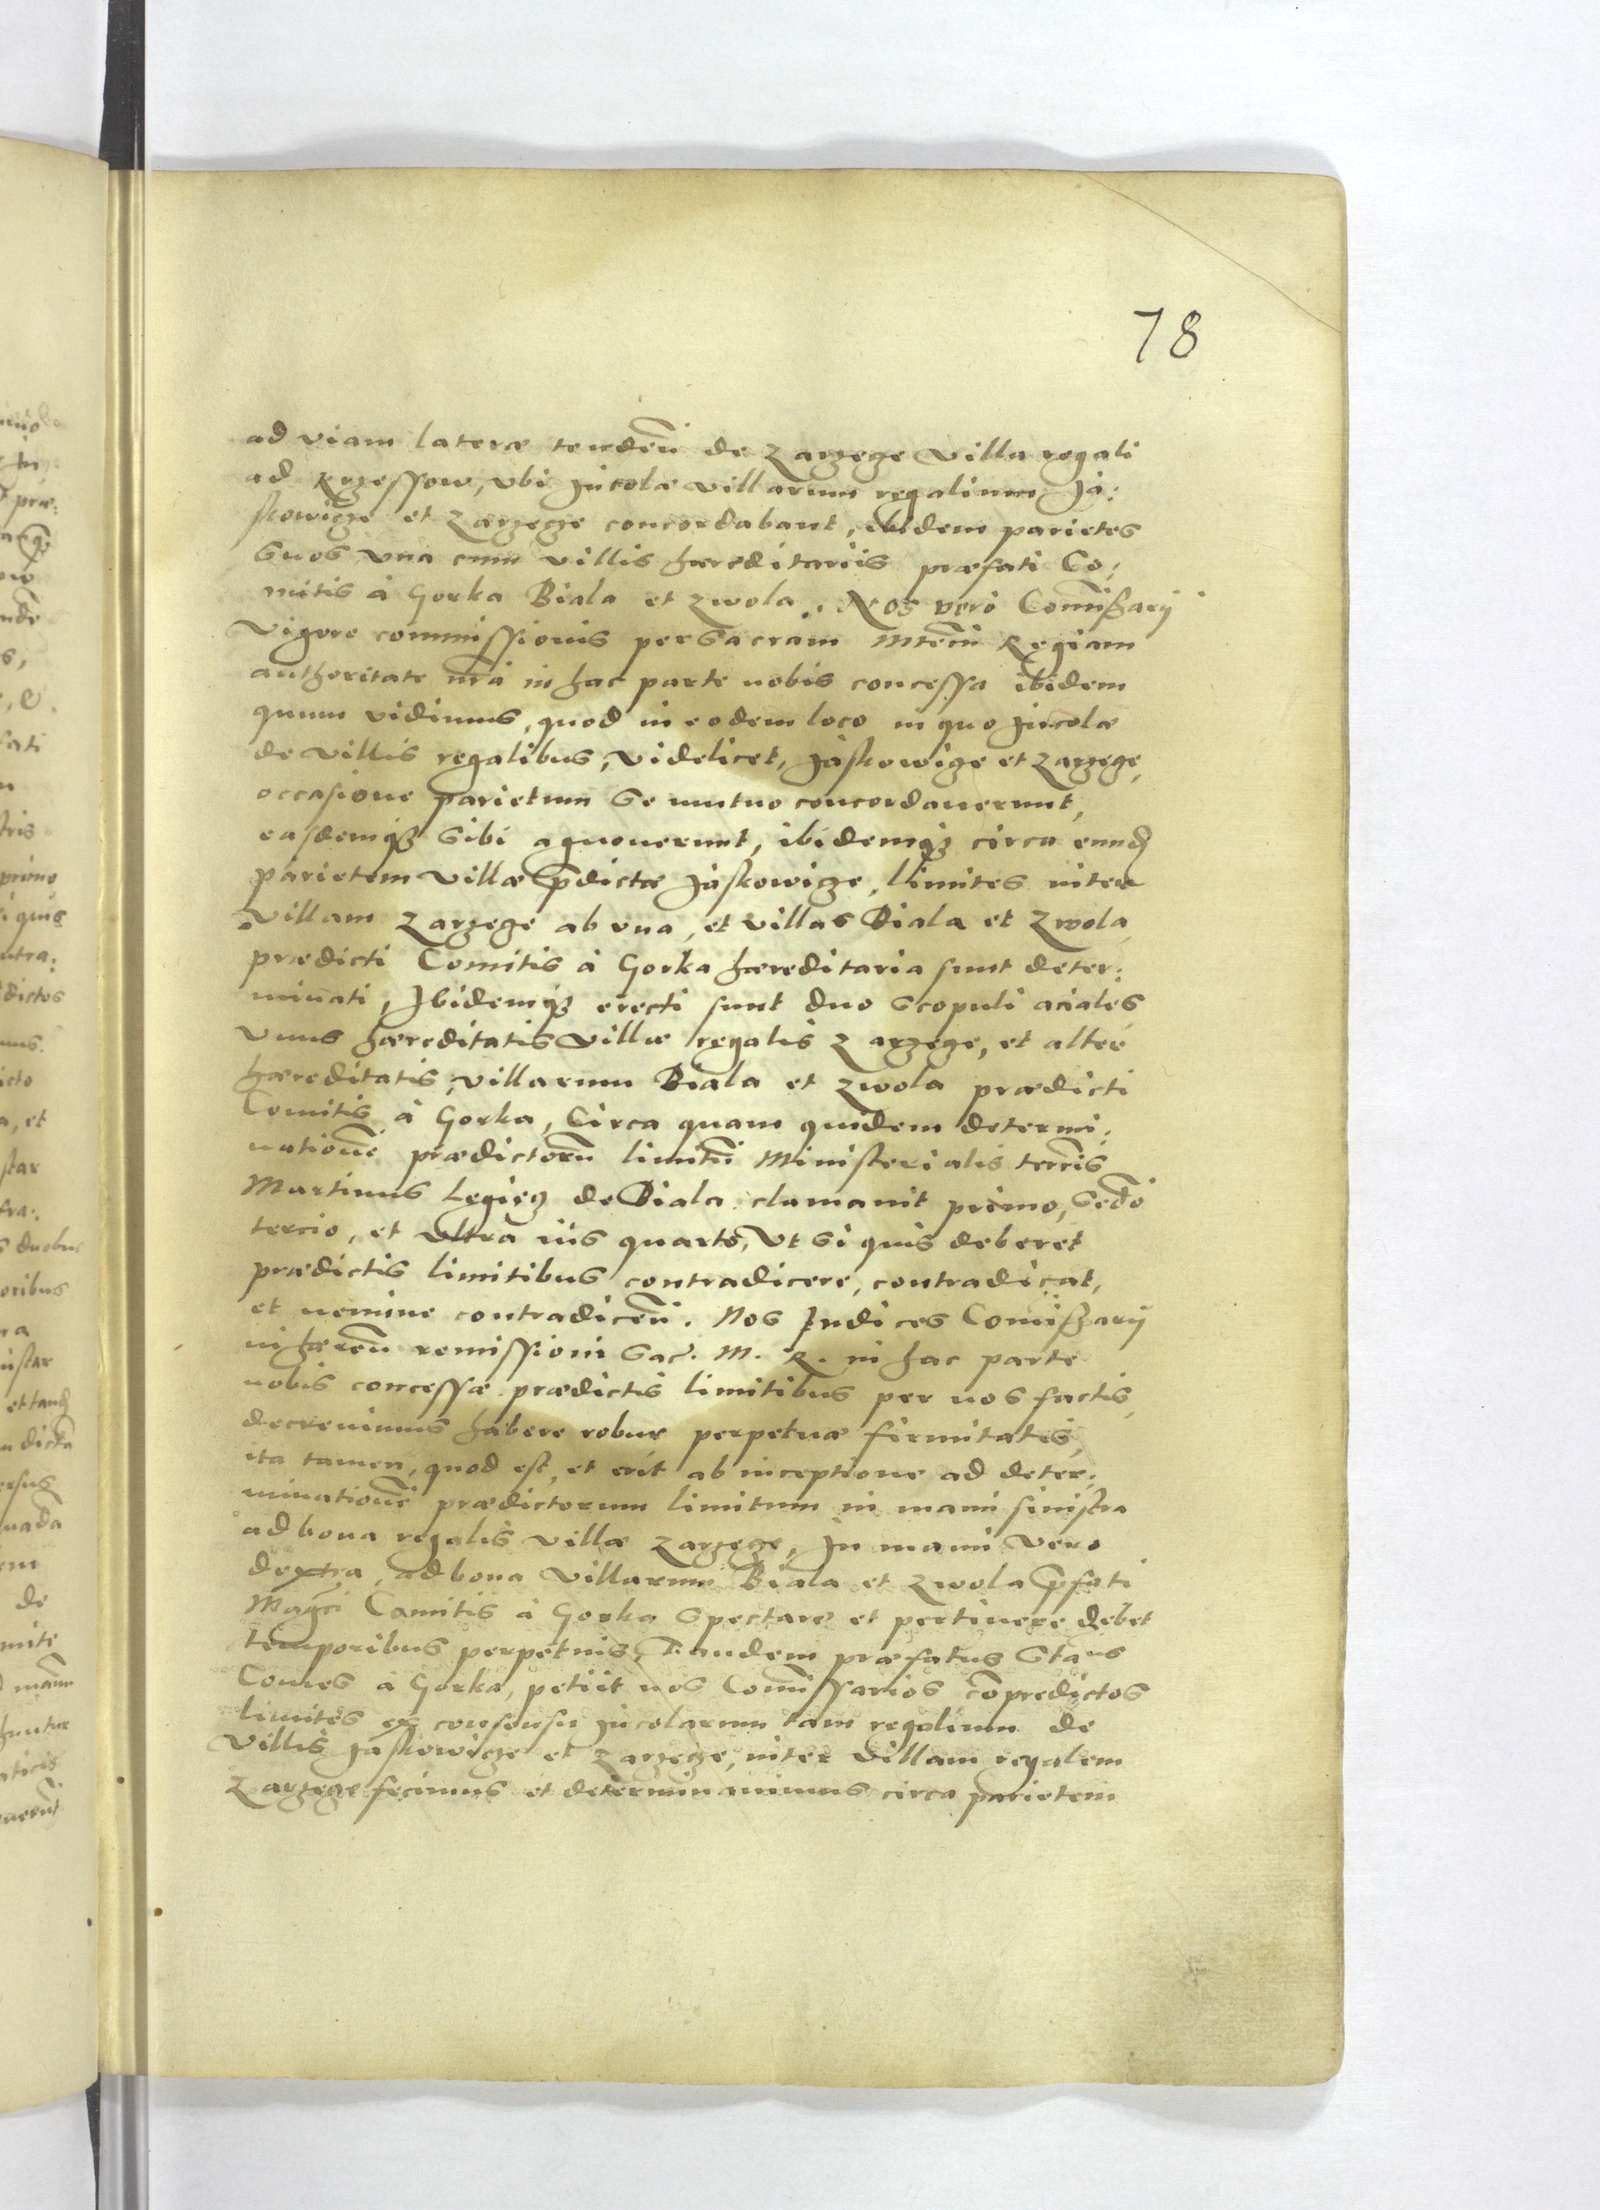 78
ad viam lateræ tendeñ de Zarzege villa regali
ad Rzessow, vbi Incolæ villarum regalium Ja:
skowicze et Zarzecze concordabant, ibidem parietes
suos vna cum villis hæreditariis præfati Co:
mitis à Gorka Biala et Zwola. Nos verò Com̃ißarij
vigore commissionis per Sacram Mtẽm Regiam
authoritate nr̃a in hac parte nobis concessa ibidem
quum vidimus, quod in eodem loco in quo Incolæ
de villis regalibus, videlicet, Jaskowige et Zarzege,
occasione parietum se mutuo concordauerunt,
easdemqȝ sibi agnouerunt, ibidemqȝ circa eund
parietem villæ p̃dictæ Jaskowicze, limites inter
villam Zarzege ab vna, et villas Biala et Zwola
prædicti Comitis à Gorka hæreditaria sunt deter:
minati, Ibidemqȝ erecti sunt duo scopuli aciales
vnus hæreditatis villæ regalis Zarzege, et alter
hæreditatis villarum Biala et Zwola prædicti
Comitis à Gorka, Circa quam quidem determi:
nationẽ prædictorũ limitũ Ministerialis terr̃is
Martinus Legięz de Biala clamauit primo, secdõ
tercio, et vltra iùs quarto, vt si quis deberet
prædictis limitibus contradicere, contradicat,
et nemine contradiceñ. Nos Judices Comißarij
inhæreñ remissioni Sac. M. R. in hac parte
nobis concessæ prædictis limitibus per nos factis,
decreuimus habere robur perpetuæ firmitatis,
ita tamen, quod est, et erit ab inceptione ad deter:
minationẽ prædictorum limitum in manu sinistra
ad bona regalis villæ Zarzege, In manu vero
dextra, ad bona villarum Biala et Zwola p̃fati
Magci Camitis à Gorka spectare et pertinere debet
temporibus perpetuis, Tandem præfatus Stans
Comes à Gorka, petiit nos Com̃issarios cõpredictos
limites ex consensu Incolarum tam regalium de
villis Jaskowicze et Zarzecze, inter villam regalem
Zarzege fecimus et determinauimus circa parietem